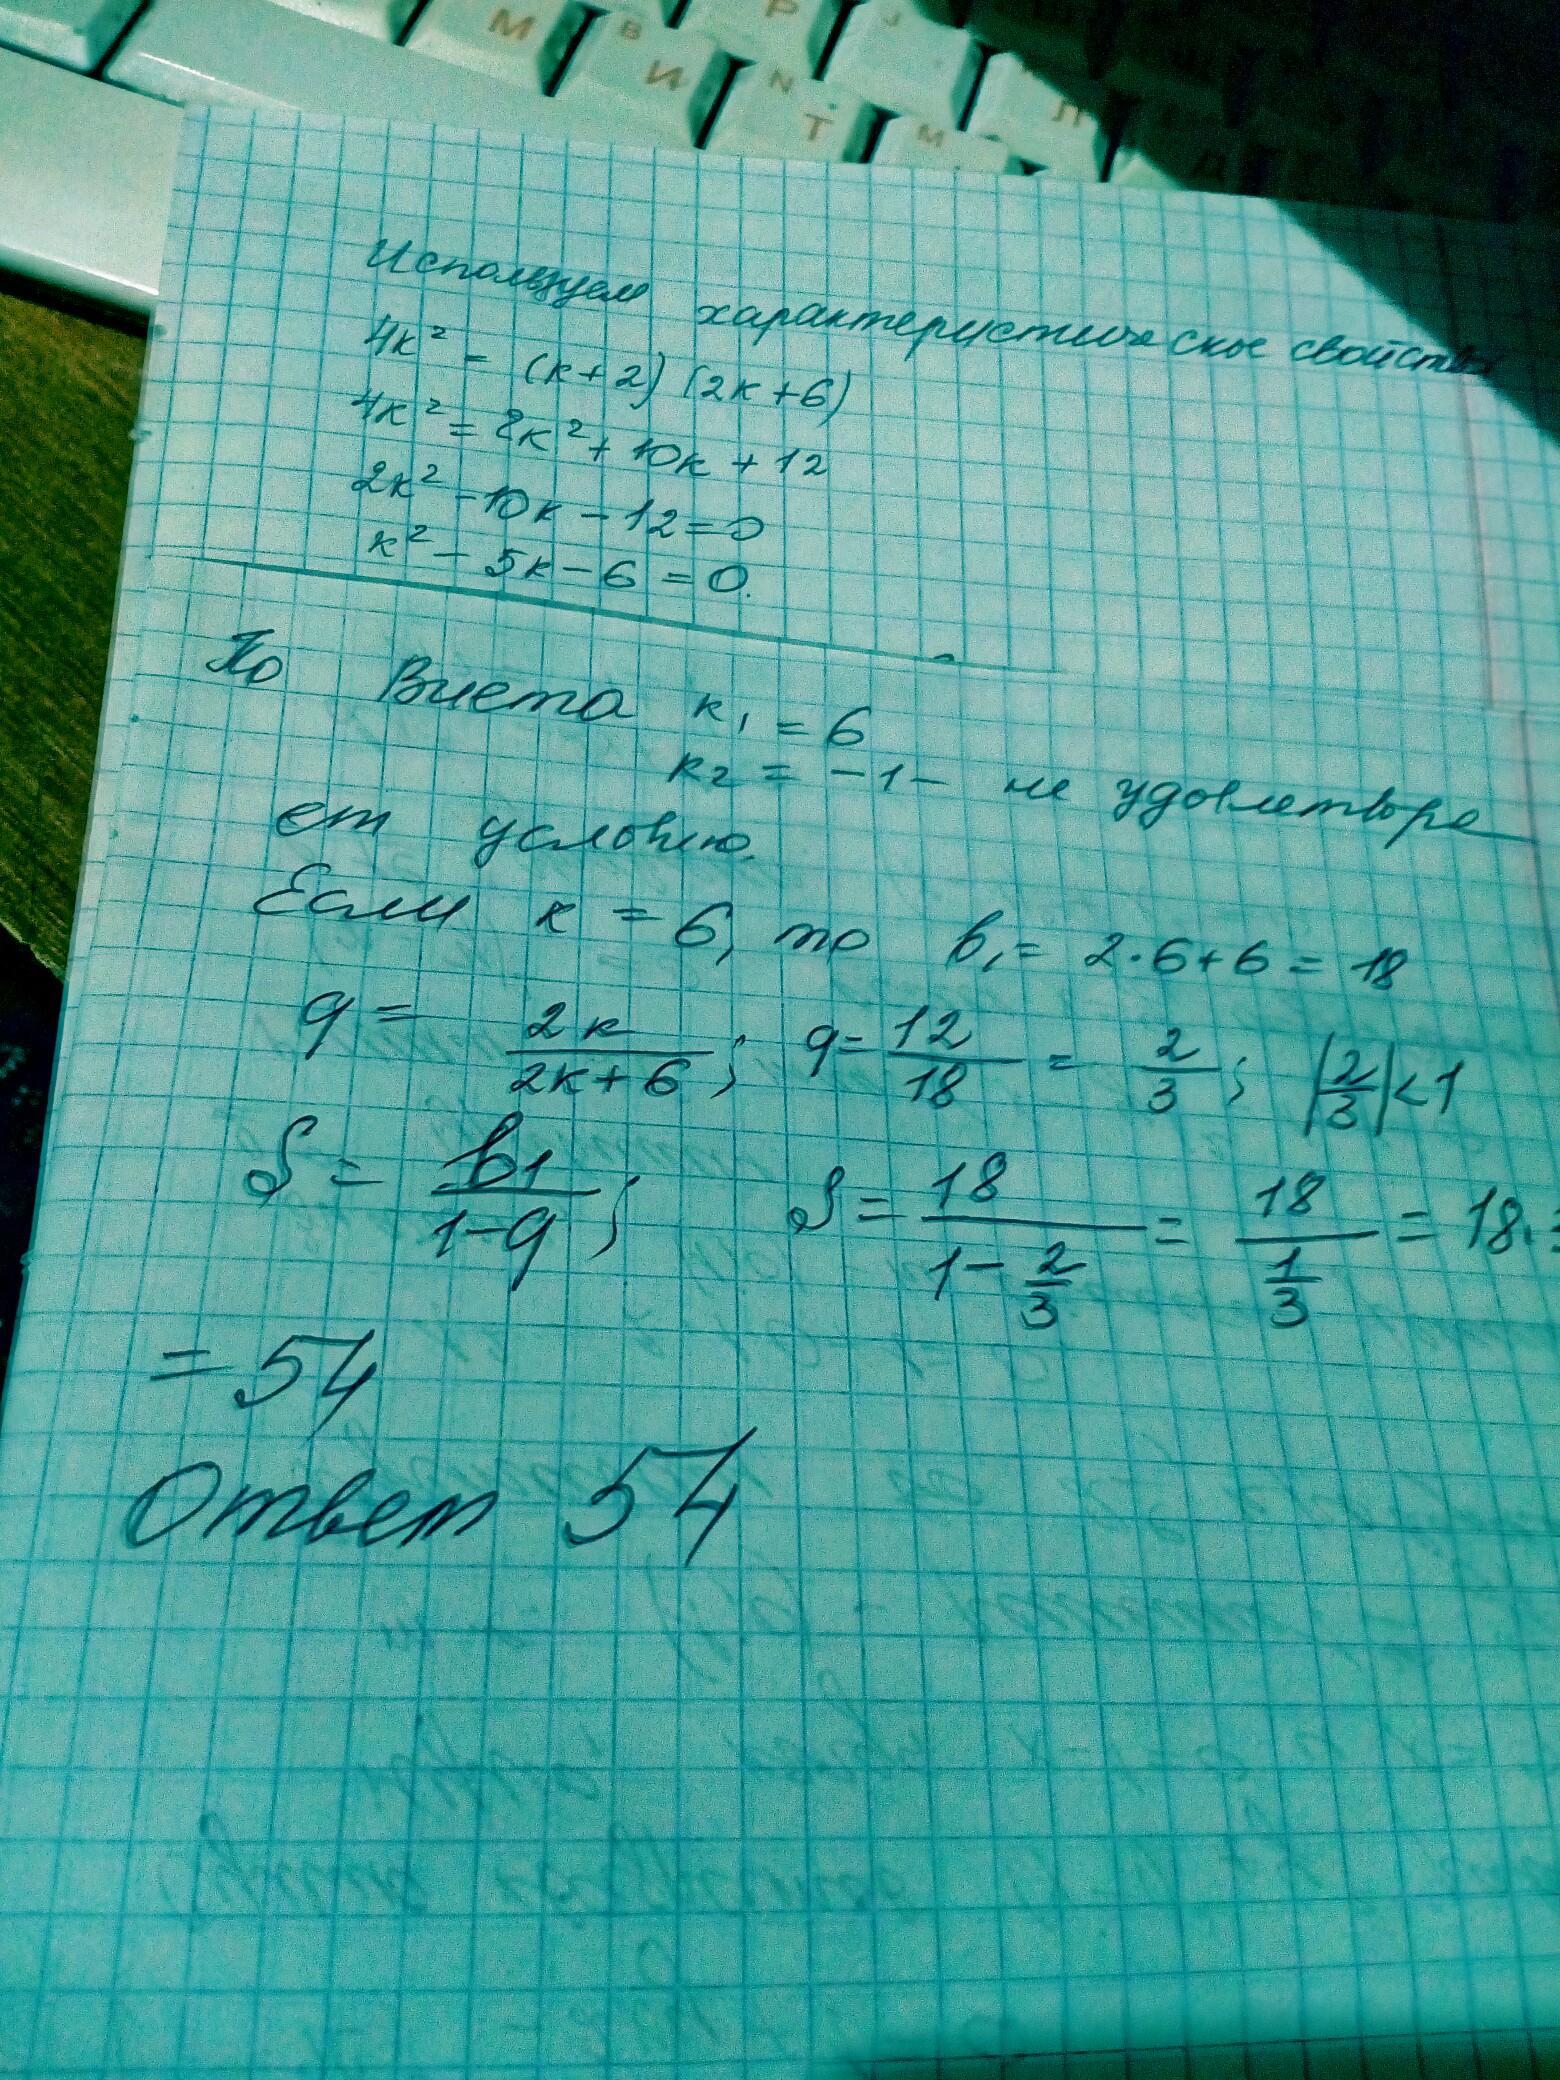 М
В
И
Р
N
Т
М
Л
Используем характеристическое свойство
4к² = (к+2)(2к+6)
4к² = 2к² + 10к + 12
2к² - 10к - 12 = 0
к² - 5к - 6 = 0.
По Виета к₁ = 6
к₂ = -1 - не удовлетворя
ет условию.
Если к = 6, то b₁ = 2·6+6 = 18
q = 2к/2к+6; q = 12/18 = 2/3; |2/3|<1
S = b₁/1-q; S = 18/1-2/3 = 18/1/3 = 18·3
= 54
Ответ 54